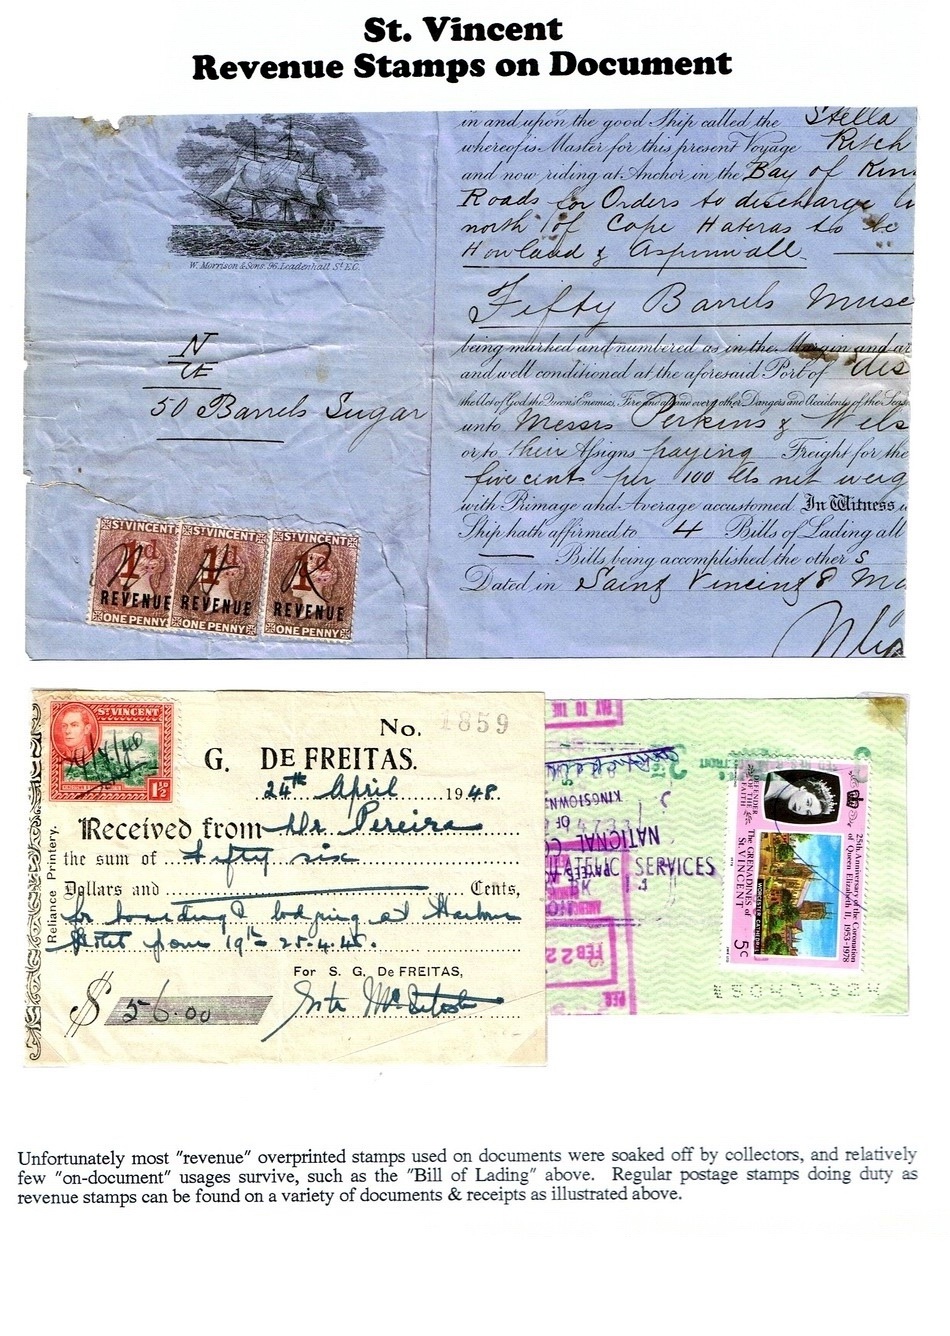 St. Vincent
Revenue Stamps on Document
in and upon the good Ship called the Stella
whereof is Master for this present Voyage Ritch
and now riding at Anchor in the Bay of Kin
Roads for Orders to discharge
north of Cape Hateras to be
Howland & Aspinwall
Fifty Barrels Musc
being marked and numbered as in the Margin and ar
and well conditioned at the aforesaid Port of
the Act of God the Queen's Enemies, Fire and all and every other Dangers and Accidents of the Seas
unto Messrs Perkins & Wels
or to their Assigns paying Freight for the
five cents per 100 lbs net weig
with Primage and Average accustomed In Witness
Ship hath affirmed to 4 Bills of Lading all
Bills being accomplished the other s
Dated in Saint Vincent 8 Ma
W. Morrison & Sons. 96. Leadenhall St. E.C.
N
50 Barrels Sugar
ST VINCENT ST VINCENT ST VINCENT
1d 1d 1d
REVENUE REVENUE REVENUE
ONE PENNY ONE PENNY ONE PENNY
ST VINCENT
1½D
No. 1859
G. DE FREITAS.
24th April 1948
Received from Mr. Pereira
the sum of fifty six
Dollars and Cents,
for boarding & lodging at Harbour
Hotel from 19th - 25.4.48.
For S. G. De FREITAS,
$ 56.00
Reliance Printery.
PAY TO THE
KINGSTOWN
NATIONAL CO
PHILATELIC SERVICES
FEB 22
DEFENDER OF THE FAITH
25th Anniversary of the Coronation
of Queen Elizabeth II, 1953-1978
The GRENADINES of
ST. VINCENT
WORCESTER CATHEDRAL
5c
Unfortunately most "revenue" overprinted stamps used on documents were soaked off by collectors, and relatively
few "on-document" usages survive, such as the "Bill of Lading" above. Regular postage stamps doing duty as
revenue stamps can be found on a variety of documents & receipts as illustrated above.